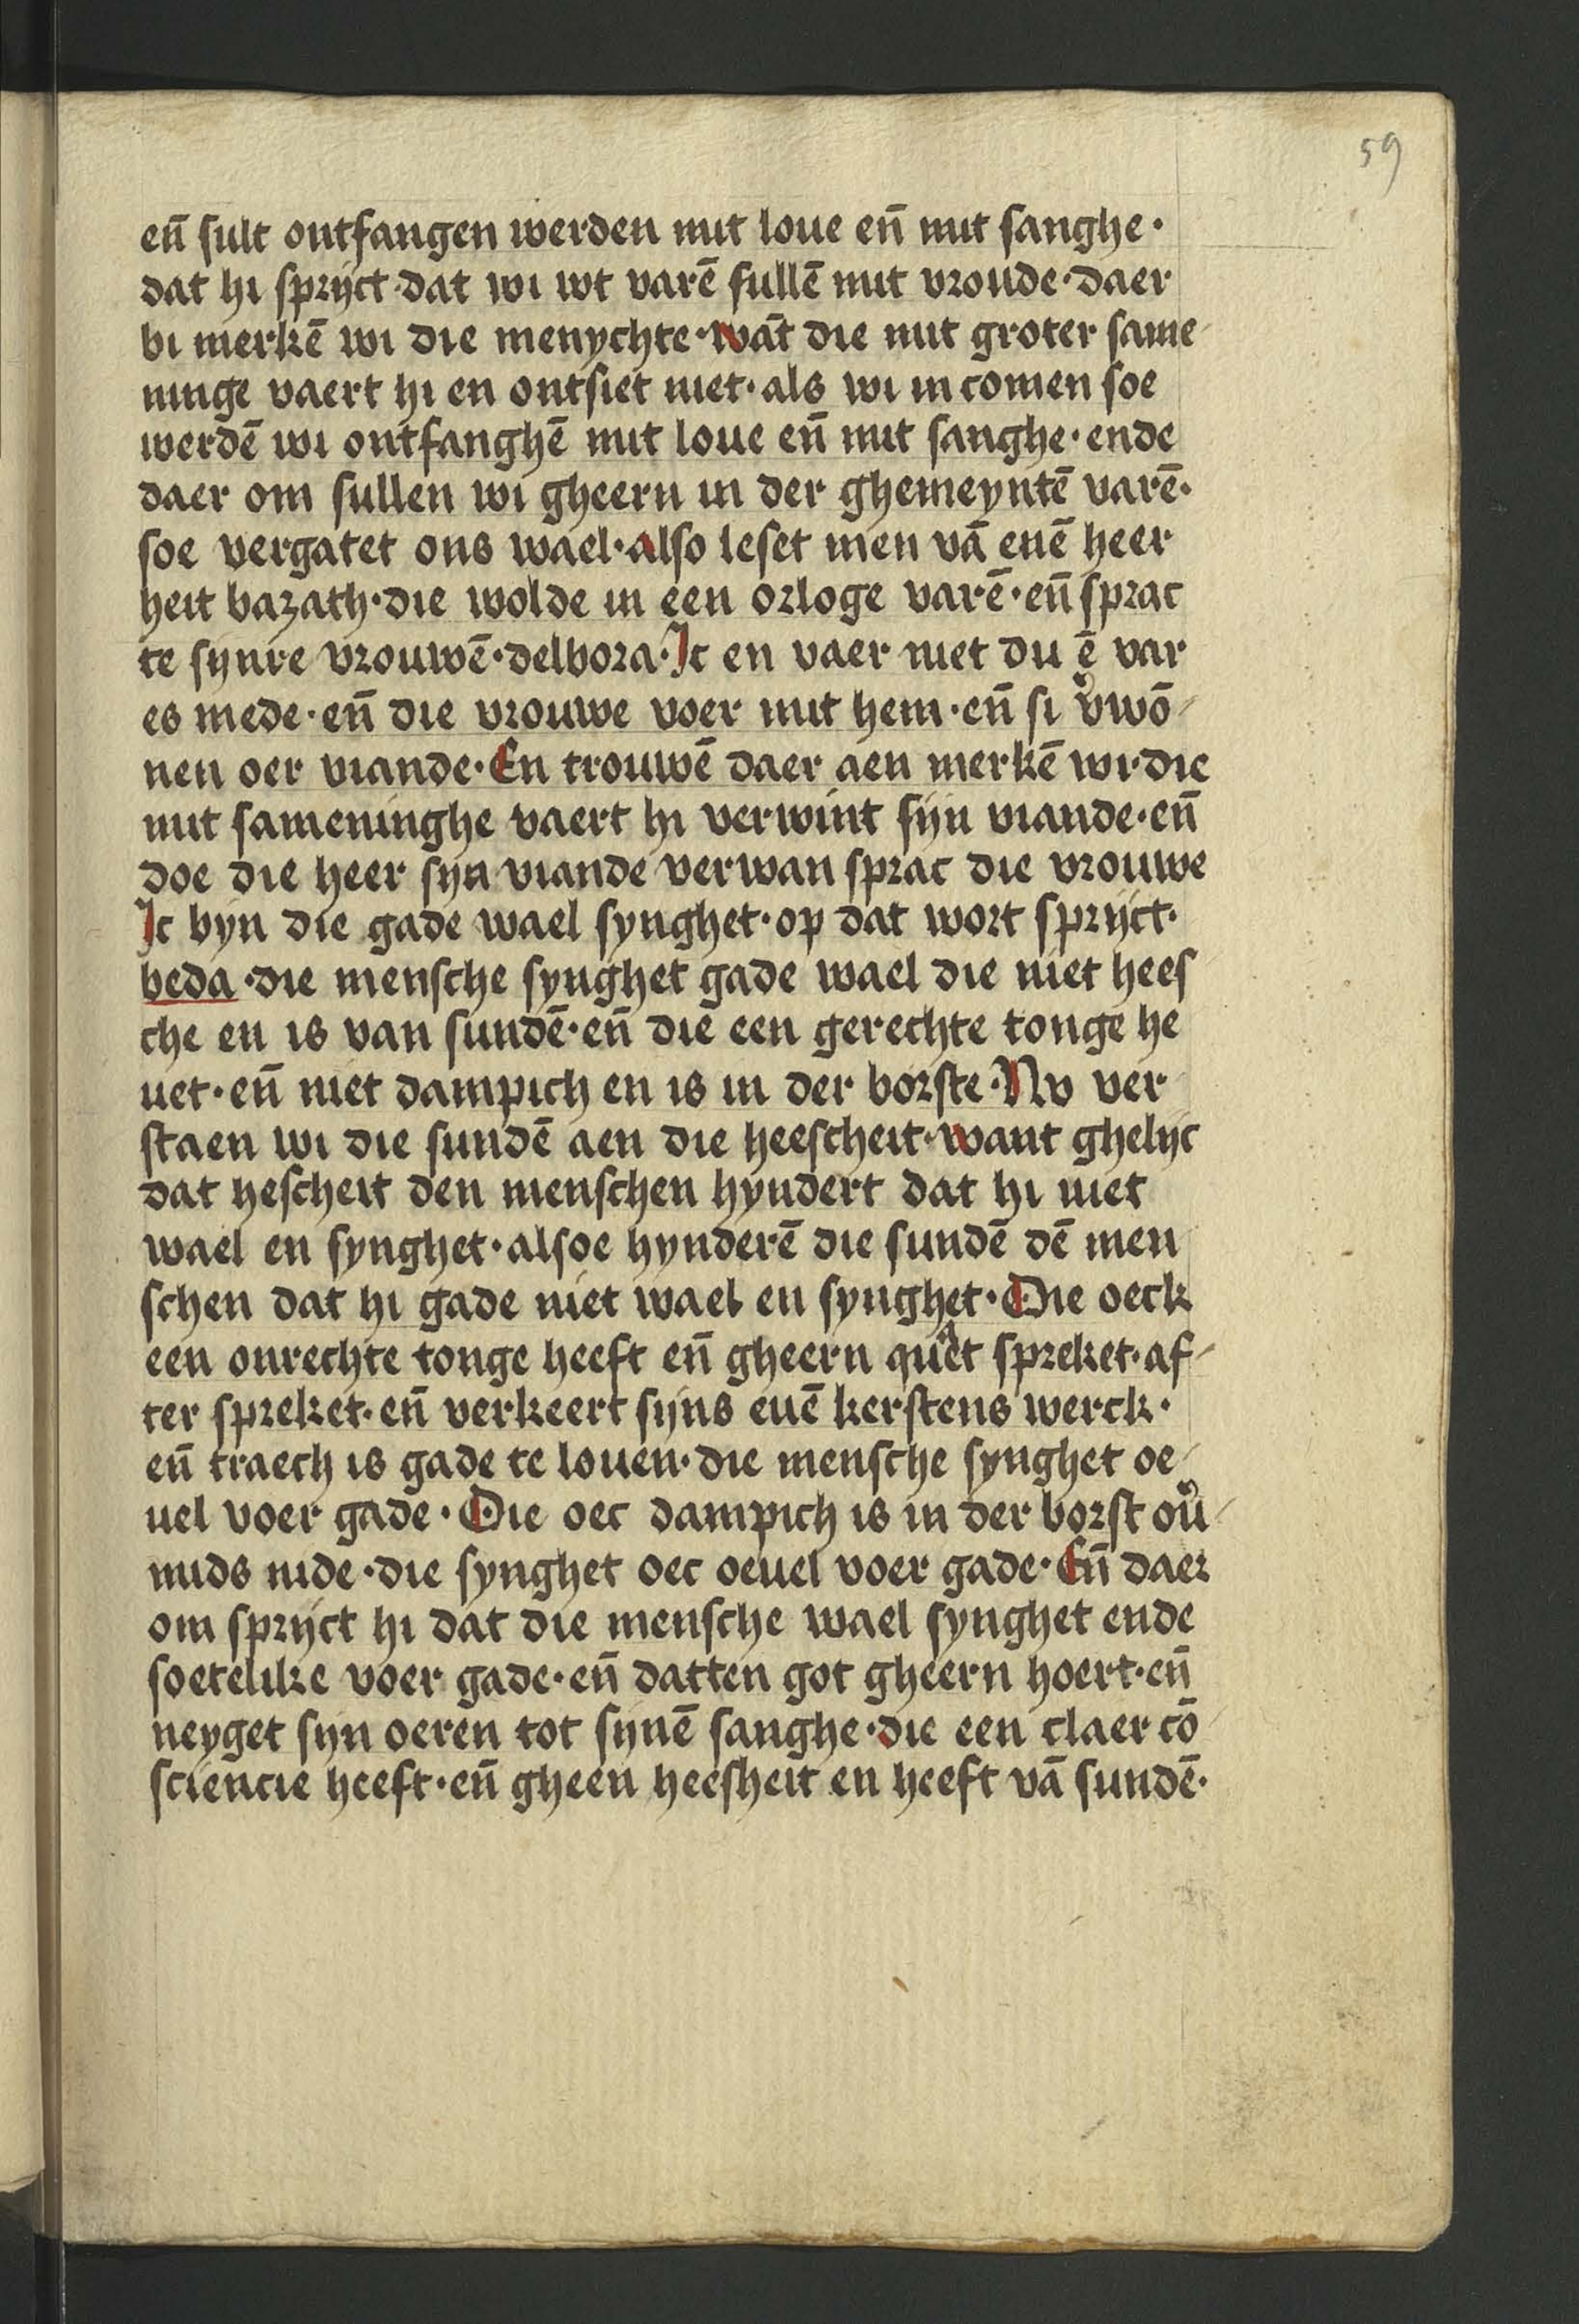 59
en̄ sult ontfangen werden mit loue en̄ mit sanghe·
dat hi sprijct·dat wi wt varē sullē mit vroude·daer
bi merkē wi die menychte·wāt die mit groter same
ninge vaert hi en ontsiet niet·als wi in comen soe
werdē wi ontfanghē mit loue en̄ mit sanghe·ende
daer om sullen wi gheern in der ghemeyntē varē·
soe vergatet ons wael·also leset men vā enē heer
heit bazath·die wolde in een orloge varē·en̄ sprac
te sijnre vrouwē·delbora·Ic en vaer niet du ē var
es mede·en̄ die vrouwe voer mit hem·en̄ si v̉wō
nen oer viande·En trouwē daer aen merkē wi·die
mit sameninghe vaert hi verwint sijn viande·en̄
doe die heer syn viande verwan sprac die vrouwe
Ic byn die gade wael synghet·op dat wort sprijct·
beda·die mensche synghet gade wael die niet hees
che en is van sundē·en̄ die een gerechte tonge he
uet·en̄ niet dampich en is in der borste·Nv ver
staen wi die sundē aen die heescheit·want ghelijc
dat hescheit den menschen hyndert dat hi niet
wael en synghet·alsoe hynderē die sundē dē men
schen dat hi gade niet wael en synghet·Die oeck
een onrechte tonge heeft en̄ gheern quaet spreket·af
ter spreket·en̄ verkeert sijns euē kerstens werck·
en̄ traech is gade te louen·die mensche synghet oe
uel voer gade·Die oec dampich is in der borst oủ
mids nide·die synghet oec oeuel voer gade·En̄ daer
om sprijct hi dat die mensche wael synghet ende
soetelike voer gade·en̄ datten got gheern hoert·en̄
neyget sijn oeren tot sijnē sanghe·die een claer cō
sciencie heeft·en̄ gheen heesheit en heeft vā sundē·